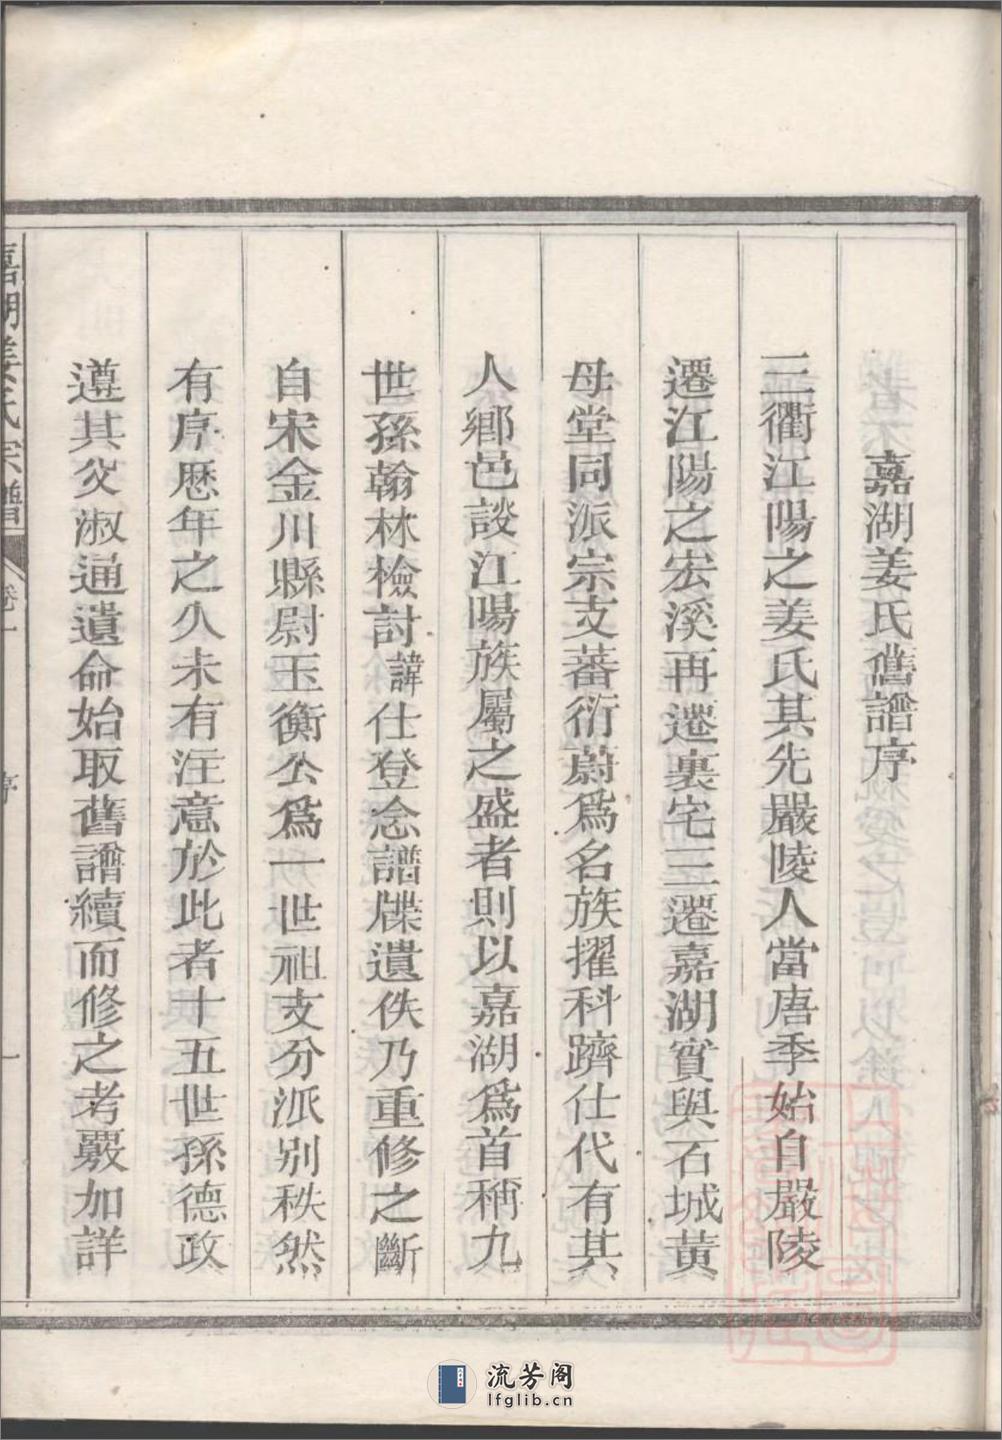 嘉湖姜氏舊譜序
三衢江陽之姜氏其先嚴陵人當唐季始自嚴陵
遷江陽之宏溪再遷裏宅三遷嘉湖實與石城黃
母堂同派宗支蕃衍蔚爲名族擢科躋仕代有其
人鄉邑談江陽族屬之盛者則以嘉湖爲首稱九
世孫翰林檢討諱仕登念譜牒遺佚乃重修之斷
自宋金川縣尉玉衡公爲一世祖支分派別秩然
有序歷年之久未有注意於此者十五世孫德政
遵其父淑通遺命始取舊譜續而修之考覈加詳
嘉湖姜氏宗譜 卷一 序 一
流芳阁
lfglib.cn